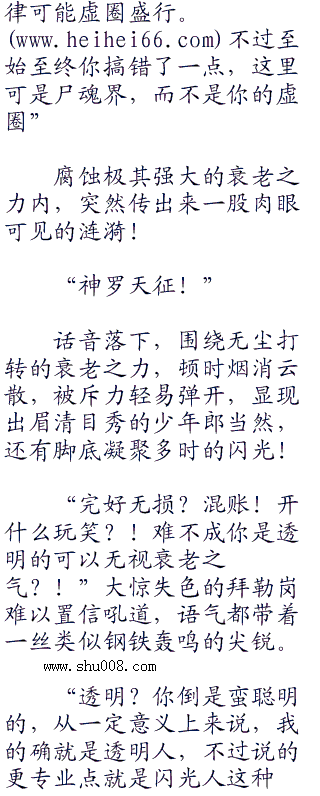 律可能虚圈盛行。
(www.heihei66.com)不过至
始至终你搞错了一点，这里
可是尸魂界，而不是你的虚
圈”
腐蚀极其强大的衰老之
力内，突然传出来一股肉眼
可见的涟漪！
“神罗天征！”
话音落下，围绕无尘打
转的衰老之力，顿时烟消云
散，被斥力轻易弹开，显现
出眉清目秀的少年郎当然，
还有脚底凝聚多时的闪光！
“完好无损？混账！开
什么玩笑？！难不成你是透
明的可以无视衰老之
气？！”大惊失色的拜勒岗
难以置信吼道，语气都带着
一丝类似钢铁轰鸣的尖锐。
www.shu008.com
“透明？你倒是蛮聪明
的，从一定意义上来说，我
的确就是透明人，不过说的
更专业点就是闪光人这种